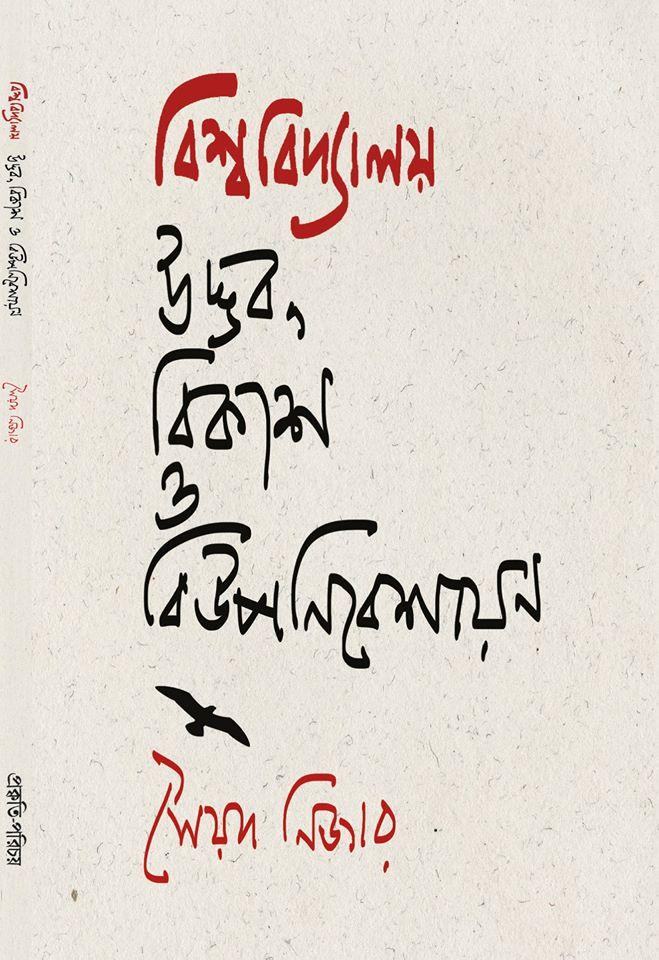 বিশ্ববিদ্যালয়
উদ্ভব,
বিকাশ
ও
বিউপনিবেশায়ন
সৈয়দ নিজার
বিশ্ববিদ্যালয় উদ্ভব, বিকাশ ও বিউপনিবেশায়ন
সৈয়দ নিজার
প্রকৃতি-পরিচয়